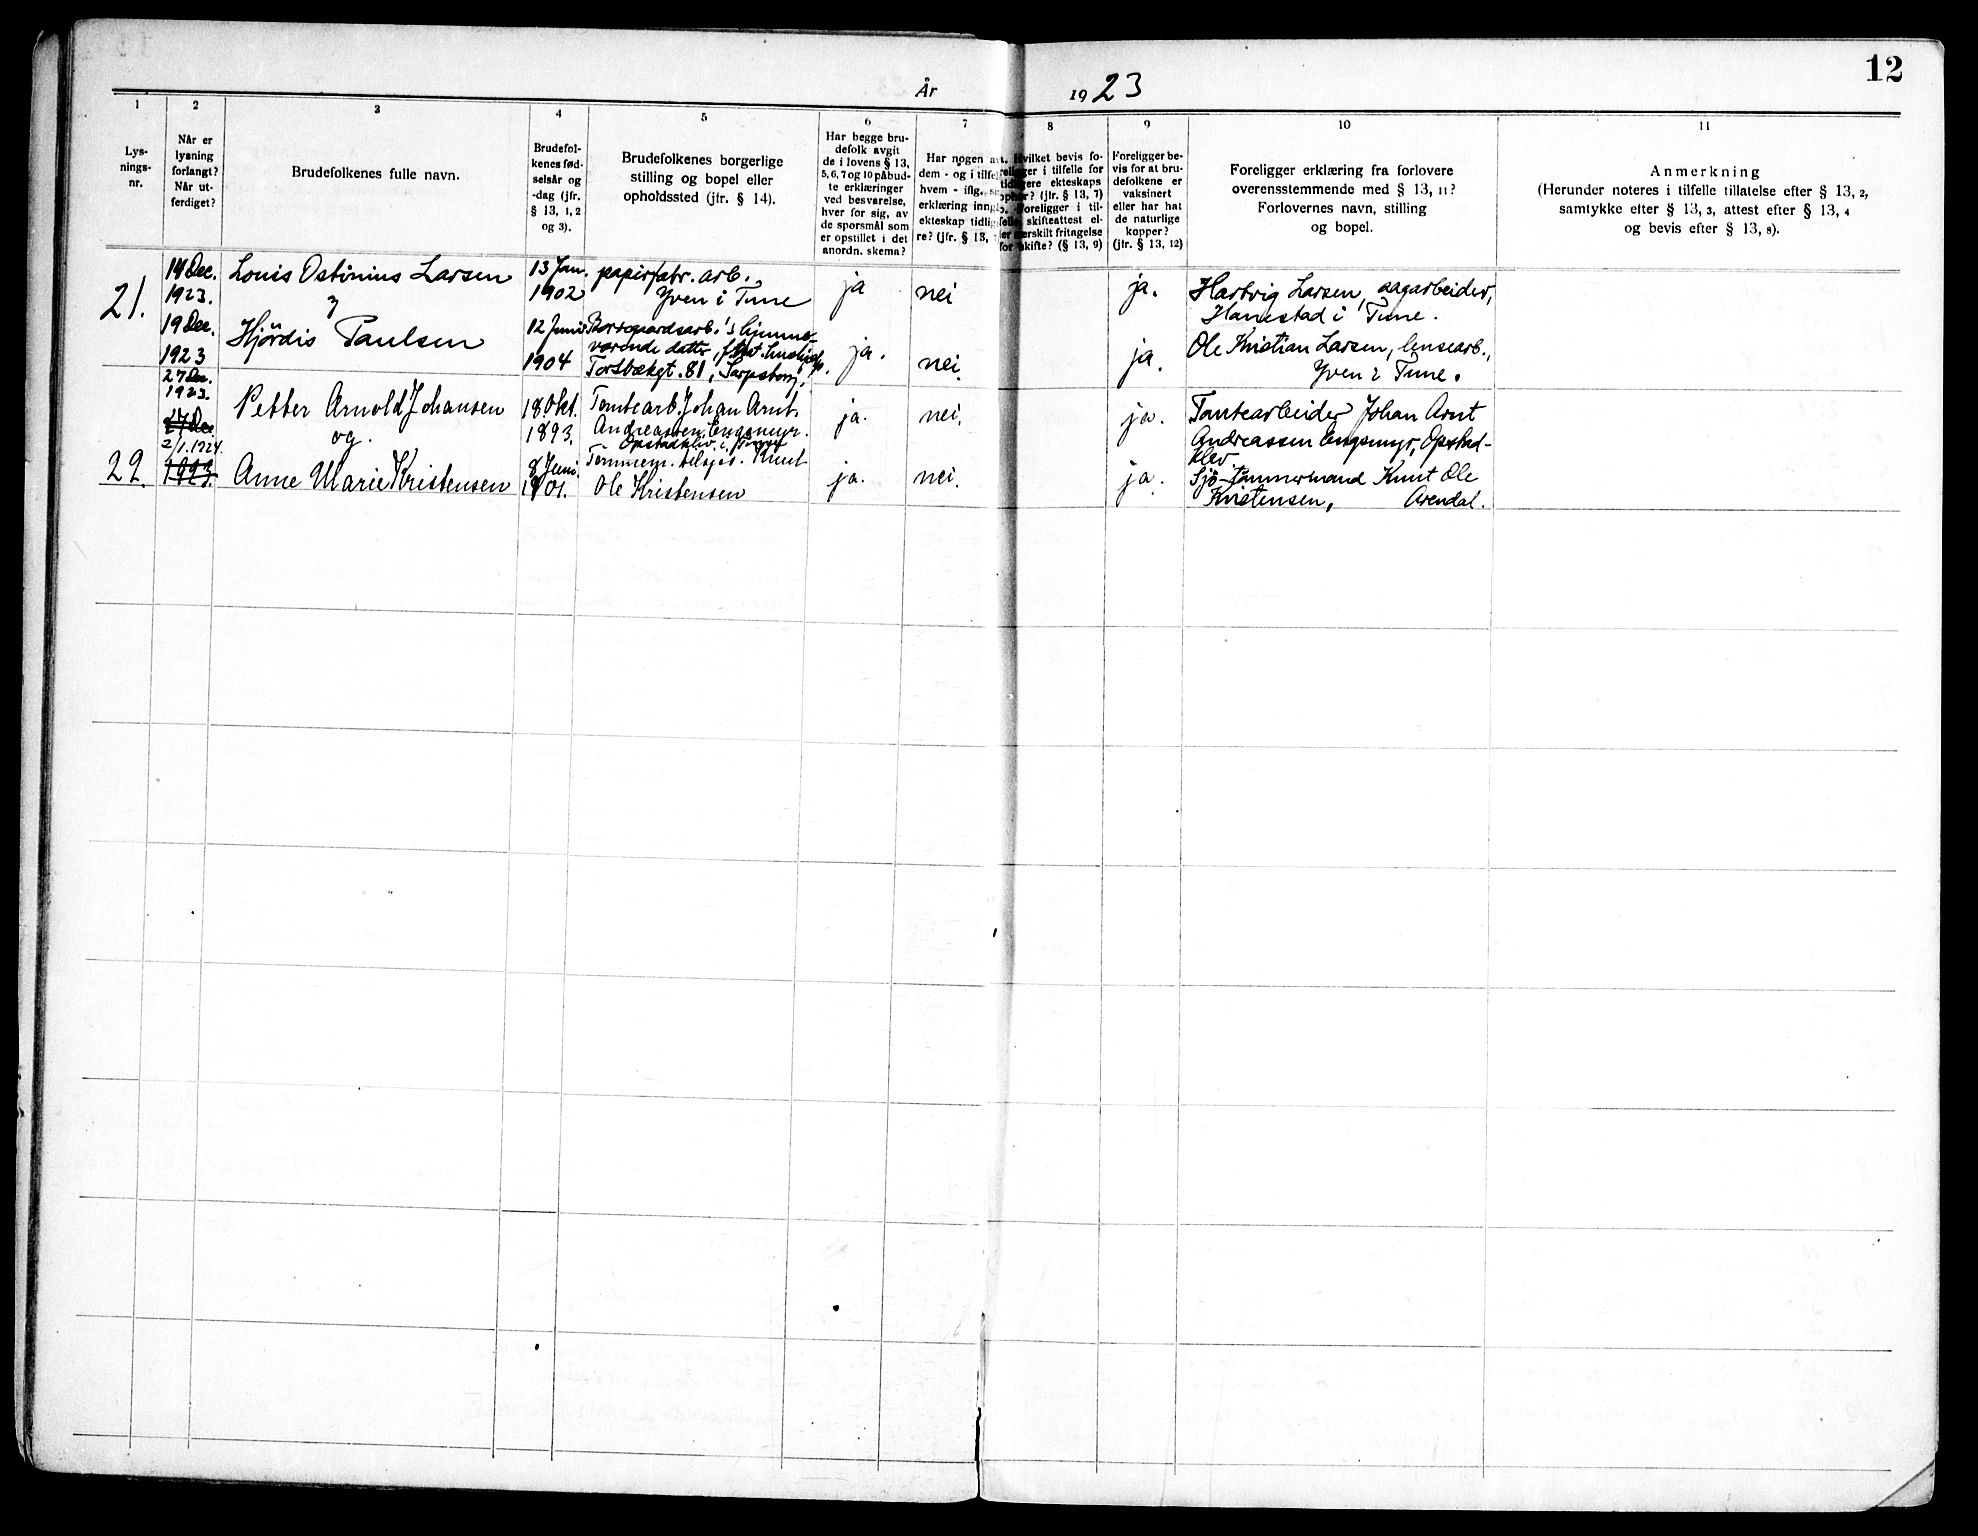 12
År 1923
1
Lys-
nings-
nr.
2
Når er
lysning
forlangt?
Når ut-
ferdiget?
3
Brudefolkenes fulle navn.
4
Brudefol-
kenes fød-
selsår og
-dag (jfr.
§ 13, 1, 2
og 3).
5
Brudefolkenes borgerlige
stilling og bopel eller
opholdssted (jfr. § 14).
6
Har begge bru-
defolk avgit
de i lovens § 13,
5, 6, 7 og 10 påbud-
te erklæringer
ved besvarelse,
hver for sig, av
de spørsmål som
er opstillet i det
anordn. skema?
7
Har nogen av
dem - og i tilfel
hvem - iflg.
erklæring inng
ekteskap tidlig
re? (jfr. § 13,
8
Hvilket bevis fo-
religger i tilfelle for
tidligere ekteskaps
ophør? (jfr. § 13, 7)
Foreligger i til-
felle skifteattest el-
ler særskilt fritagelse
for skifte? (§ 13, 9)
9
Foreligger be-
vis for at bru-
defolkene er
vaksinert
eller har hat
de naturlige
kopper?
(jfr. § 13, 12)
10
Foreligger erklæring fra forlovere
overensstemmende med § 13, 11?
Forlovernes navn, stilling
og bopel.
11
Anmerkning
(Herunder noteres i tilfelle tillatelse efter § 13, 2,
samtykke efter § 13, 3, attest efter § 13, 4
og bevis efter § 13, 8).
21.
14 Dec.
1923.
19 Dec.
1923
Louis Ostinius Larsen
Hjördis Paulsen
13 Jan.
1902
12 Juni
1904
papirfabr. arb.
Yven i Tune
Borregaardsarb.'s hjemme-
værende datter,
Torsbækgt. 81, Sarpsborg.
ja
ja.
nei
nei.
ja.
ja.
Hartvig Larsen, sagarbeider,
Hanestad i Tune.
Ole Kristian Larsen, lensearb.,
Yven i Tune.
22.
27 Dec.
1923.
27 Dec
2/1.1924.
1923.
Petter Arnold Johansen
og.
Anne Marie Kristensen
18. Okt.
1893.
8 Juni.
1901.
Tomtearb. Johan Arnt
Andreassen Engsmyr.
Opstadklev i Tune
Tømmerm. Knut
Ole Kristensen
ja.
ja.
nei.
nei.
ja.
ja.
Tomtearbeider Johan Arnt
Andreassen Engsmyr, Opstad-
klev
Sjö-tömmermand Knut Ole
Kristensen, Arendal.